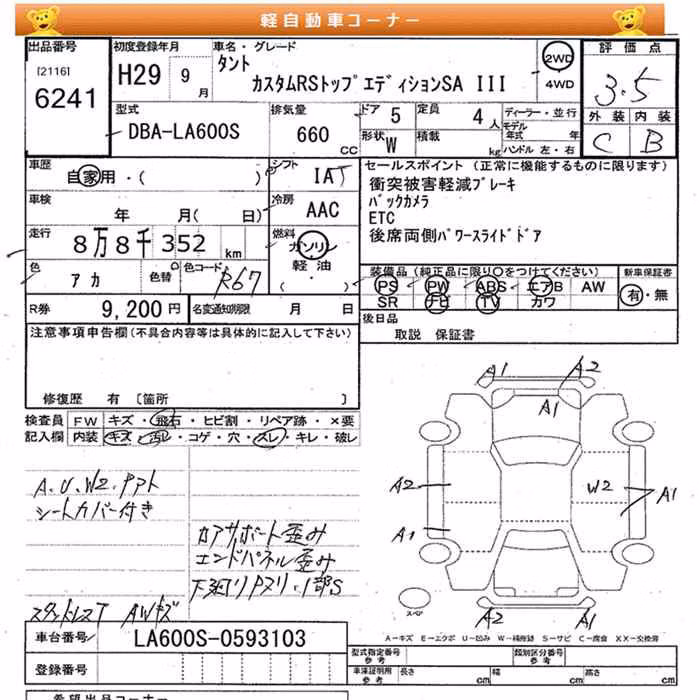 軽自動車コーナー
出品番号
[2116]
6241
初度登録年月
H29 9 月
車名・グレード
タント
カスタムRSトップエディションSA III
2WD
4WD
評価点
3.5
外装 内装
C B
型式
DBA-LA600S
排気量
660 CC
ドア 5
定員 4 人
形状 W
積載 kg
ディーラー・並行
モデル年式 年
ハンドル 左・右
車歴
自家用・( )
シフト
IAT
車検
年 月( 日)
冷房
AAC
走行
8万8千352 km
燃料
ガソリン
軽油
( )
色
アカ
色替
色コード
R67
R券 9,200円
名変通知期限 月 日
セールスポイント (正常に機能するものに限ります)
衝突被害軽減ブレーキ
バックカメラ
ETC
後席両側パワースライドドア
装備品 (純正品に限り○をつけてください)
PS PW ABS エアB AW
SR ナビ TV カワ
新車保証書
有・無
後日品
取説 保証書
注意事項申告欄(不具合内容等は具体的に記入して下さい)
修復歴 有 [箇所 ]
検査員記入欄
FW キズ・飛石・ヒビ割・リペア跡・×要
内装 キズ・汚れ・コゲ・穴・スレ・キレ・破レ
A.U.W2.
シートカバー付き
コアサポート歪み
エンドパネル歪み
下廻り 1部S
スタッドレスT AWキズ
A1 A2
A1
A2 W2 A1
A1
A2 A1
スペア
A-キズ E-エクボ U-凹み W-補修跡 S-サビ C-腐食 XX-交換済
車台番号 LA600S-0593103
登録番号
型式指定番号 参考
類別区分番号 参考
車庫証明用 参考
長さ cm
幅 cm
高さ cm
希望出品コーナー